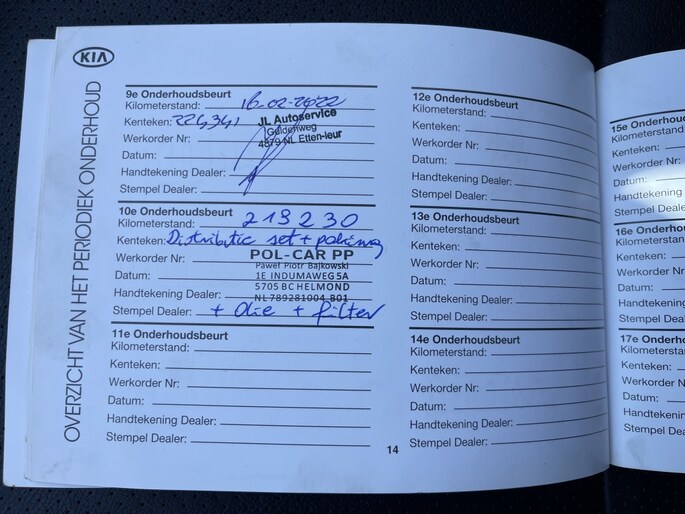 KIA
OVERZICHT VAN HET PERIODIEK ONDERHOUD
9e Onderhoudsbeurt
Kilometerstand: 16-02-2022
Kenteken: 224,341
JL Autoservice
Guldenweg
4879 NL Etten-leur
Werkorder Nr:
Datum:
Handtekening Dealer:
Stempel Dealer:
10e Onderhoudsbeurt
Kilometerstand: 213230
Kenteken: Distributie set +
Werkorder Nr:
POL-CAR PP
Paweł Piotr Bajkowski
Datum:
1E INDUMAWEG 5A
5705 BC HELMOND
Handtekening Dealer:
NL789281004 B01
Stempel Dealer: + Olie + filter
11e Onderhoudsbeurt
Kilometerstand:
Kenteken:
Werkorder Nr:
Datum:
Handtekening Dealer:
Stempel Dealer:
12e Onderhoudsbeurt
Kilometerstand:
Kenteken:
Werkorder Nr:
Datum:
Handtekening Dealer:
Stempel Dealer:
13e Onderhoudsbeurt
Kilometerstand:
Kenteken:
Werkorder Nr:
Datum:
Handtekening Dealer:
Stempel Dealer:
14e Onderhoudsbeurt
Kilometerstand:
Kenteken:
Werkorder Nr:
Datum:
Handtekening Dealer:
Stempel Dealer:
14
15e Onderhoudsbeu
Kilometerstand
Kenteken:
Werkorder Nr:
Datum:
Handtekening
Stempel Deale
16e Onderhou
Kilometerstan
Kenteken:
Werkorder Nr
Datum:
Handtekening
Stempel Dea
17e Onderho
Kilometersta
Kenteken:
Werkorder N
Datum:
Handtekenin
Stempel De